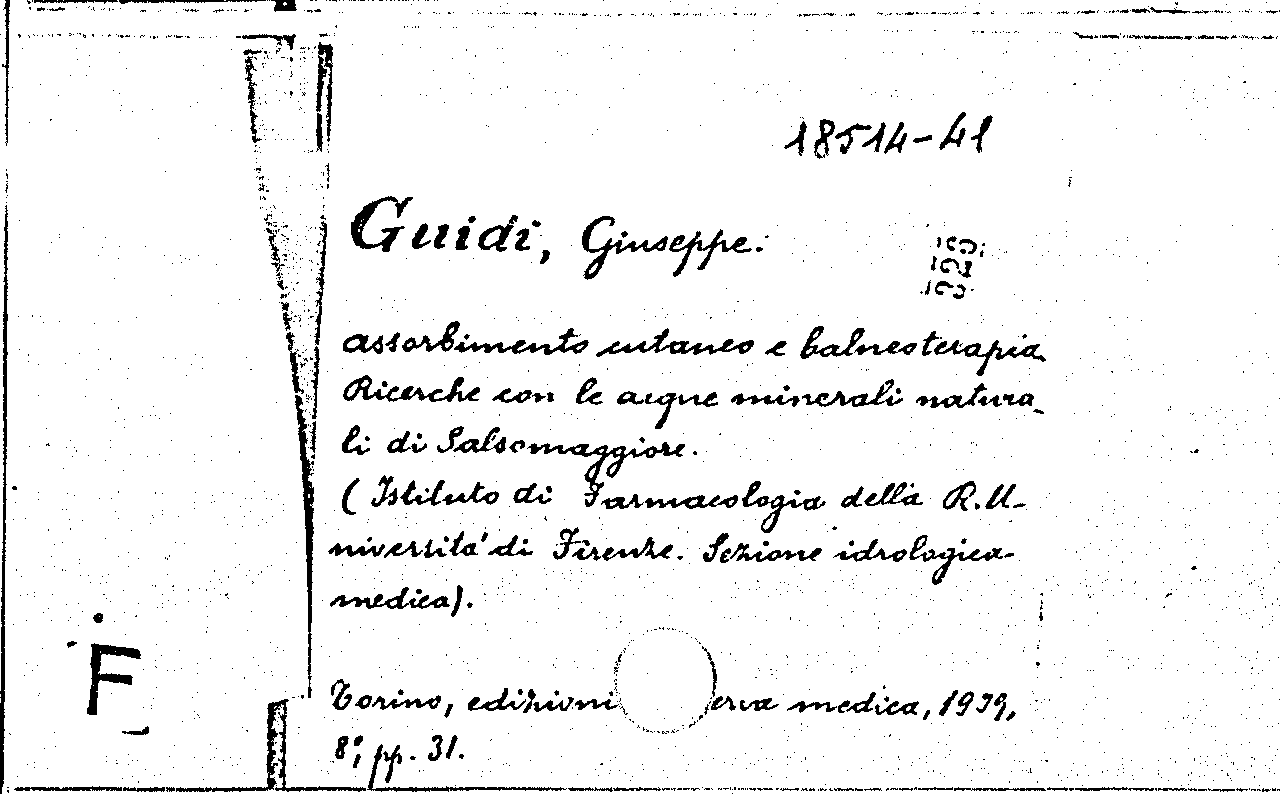 18514-41
Guidi, Giuseppe.
329
assorbimento cutaneo e balneoterapia
Ricerche con le acque minerali natura-
li di Salsomaggiore.
(Istituto di Farmacologia della R.U-
niversita' di Firenze. Sezione idrologica-
medica).
F
Torino, edizioni erva medica, 1939,
8°, pp. 31.